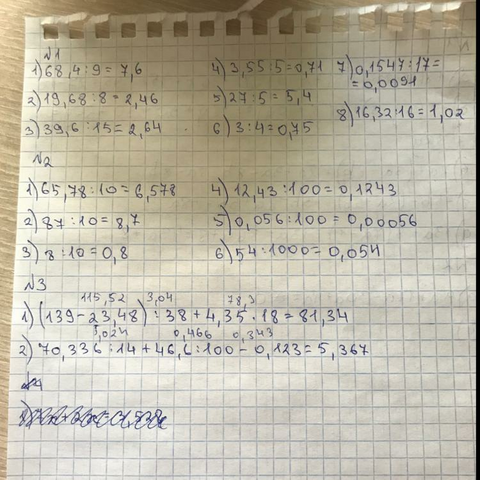 №1
1) 68,4 : 9 = 7,6
2) 19,68 : 8 = 2,46
3) 39,6 : 15 = 2,64
4) 3,55 : 5 = 0,71
5) 27 : 5 = 5,4
6) 3 : 4 = 0,75
7) 0,1547 : 17 =
= 0,0091
8) 16,32 : 16 = 1,02
№2
1) 65,78 : 10 = 6,578
2) 87 : 10 = 8,7
3) 8 : 10 = 0,8
4) 12,43 : 100 = 0,1243
5) 0,056 : 100 = 0,00056
6) 54 : 1000 = 0,054
№3
115,52 3,04 78,3
1) (139 - 23,48) : 38 + 4,35 · 18 = 81,34
5,024 0,466 0,343
2) 70,336 : 14 + 46,6 : 100 - 0,123 = 5,367
№4